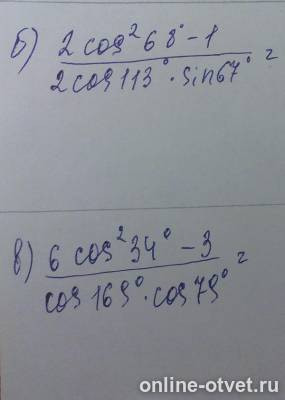 б) 2 cos² 68° - 1
2 cos 113° · sin 67° =
в) 6 cos² 34° - 3
cos 169° · cos 79° =
online-otvet.ru